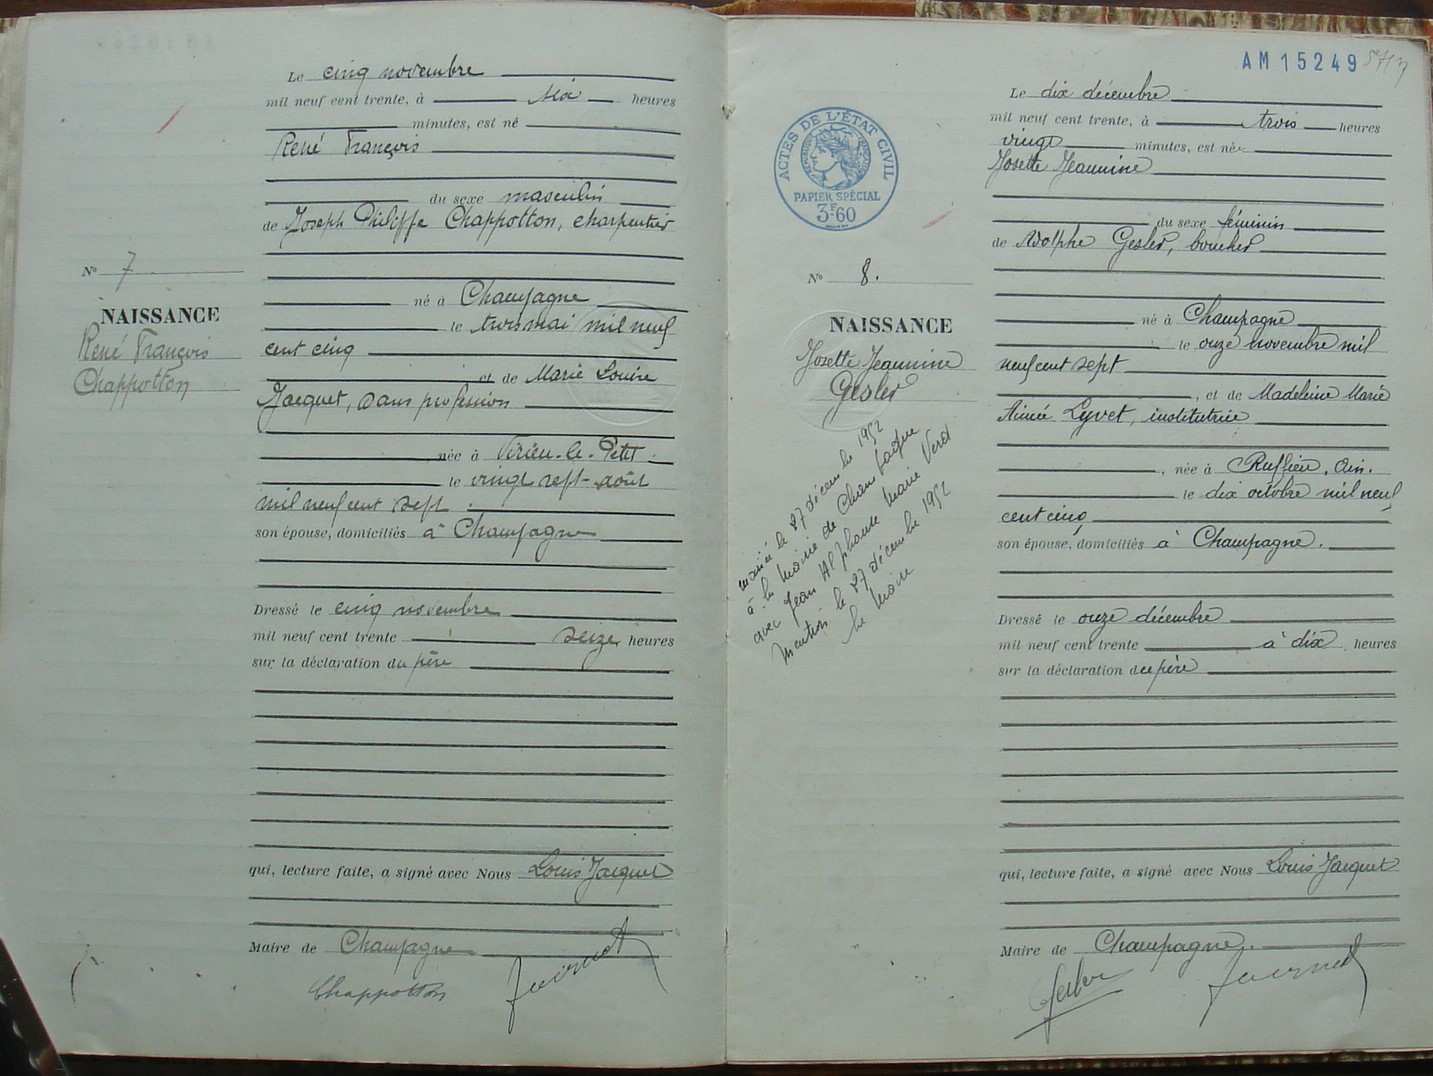 Le cinq novembre
mil neuf cent trente, à six heures
minutes, est né
René François
du sexe masculin
de Joseph Philippe Chappotton, charpentier
né à Champagne
le trois mai mil neuf
cent cinq
et de Marie Louise
Jacquet, sans profession
née à Virieu-le-Petit
le vingt sept août
mil neuf cent sept
son épouse, domiciliés à Champagne
Dressé le cinq novembre
mil neuf cent trente seize heures
sur la déclaration du père
qui, lecture faite, a signé avec Nous Louis Jacquet
Maire de Champagne
Chappotton
N° 7
NAISSANCE
René François
Chappotton
AM 15249
ACTES DE L'ÉTAT CIVIL
PAPIER SPÉCIAL
3F.60
Le dix décembre
mil neuf cent trente, à trois heures
vingt minutes, est née
Josette Jeannine
du sexe féminin
de Adolphe Gesler, boucher
né à Champagne
le onze novembre mil
neuf cent sept
, et de Madeleine Marie
Aimée Lyvet, institutrice
, née à Ruffieu, Ain.
le dix octobre mil neuf
cent cinq
son épouse, domiciliés à Champagne.
Dressé le onze décembre
mil neuf cent trente à dix heures
sur la déclaration du père
qui, lecture faite, a signé avec Nous Louis Jacquet
Maire de Champagne.
Gesler
N° 8.
NAISSANCE
Josette Jeannine
Gesler
mariée le 27 décembre 1952
à la mairie de Champagne
avec Jean Alphonse Marie
Mention le 27 décembre 1952
Le Maire